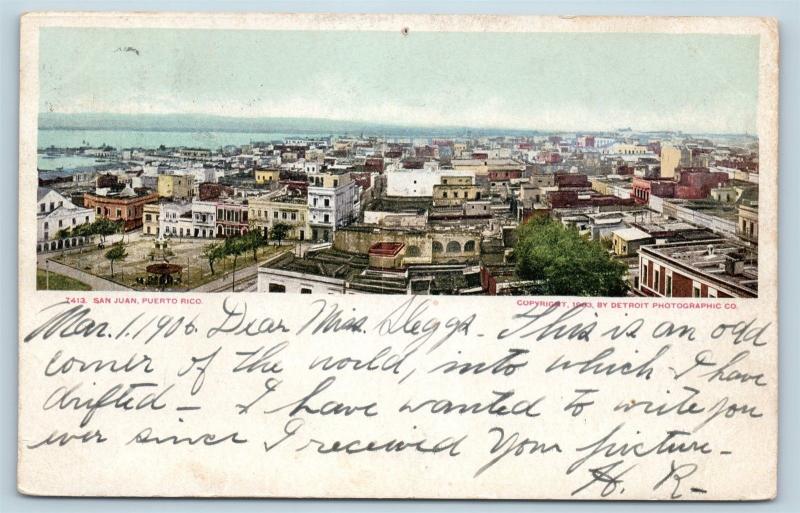 7413. SAN JUAN, PUERTO RICO.
COPYRIGHT, 1903, BY DETROIT PHOTOGRAPHIC CO.
Mar. 1. 1906. Dear Miss. This is an odd
corner of the world, into which I have
drifted — I have wanted to write you
ever since I received Your picture —
H. R —